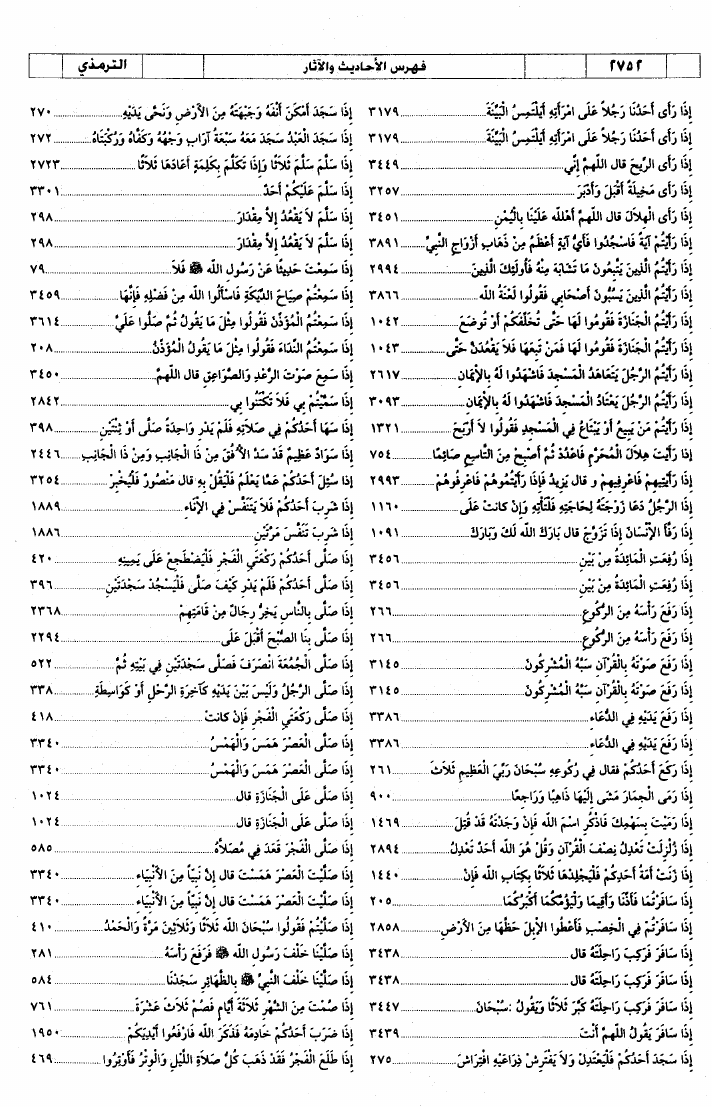 ٢٧٥٢ فهرس الأحاديث والآثار الترمذي
إِذَا رَأَى أَحَدُنَا رَجُلاً عَلَى امْرَأَتِهِ أَيَلْتَمِسُ الْبَيِّنَةَ ٣١٧٩
إِذَا رَأَى أَحَدُنَا رَجُلاً عَلَى امْرَأَتِهِ أَيَلْتَمِسُ الْبَيِّنَةَ ٣١٧٩
إِذَا رَأَى الرِّيحَ قال اللهمَّ إِنِّي ٣٤٤٩
إِذَا رَأَى مَخِيلَةً أَقْبَلَ وَأَدْبَرَ ٣٢٥٧
إِذَا رَأَى الْهِلاَلَ قال اللهمَّ أَهْلله عَلَيْنَا بِالْيُمْنِ ٣٤٥١
إِذَا رَأَيْتُمْ آيَةً فَاسْجُدُوا فَأَيُّ آيَةٍ أَعْظَمُ مِنْ ذَهَابِ أَزْوَاجِ النَّبِيِّ ٣٨٩١
إِذَا رَأَيْتُمُ الَّذِينَ يَتَّبِعُونَ مَا تَشَابَهَ مِنْهُ فَأُولَئِكَ الَّذِينَ ٢٩٩٤
إِذَا رَأَيْتُمُ الَّذِينَ يَسُبُّونَ أَصْحَابِي فَقُولُوا لَعْنَةُ الله ٣٨٦٦
إِذَا رَأَيْتُمُ الْجَنَازَةَ فَقُومُوا لَهَا حَتَّى تُخَلِّفَكُمْ أَوْ تُوضَعَ ١٠٤٢
إِذَا رَأَيْتُمُ الْجَنَازَةَ فَقُومُوا لَهَا فَمَنْ تَبِعَهَا فَلاَ يَقْعُدَنَّ حَتَّى ١٠٤٣
إِذَا رَأَيْتُمُ الرَّجُلَ يَتَعَاهَدُ الْمَسْجِدَ فَاشْهَدُوا لَهُ بِالإِيْمَانِ ٢٦١٧
إِذَا رَأَيْتُمُ الرَّجُلَ يَعْتَادُ الْمَسْجِدَ فَاشْهَدُوا لَهُ بِالإِيْمَانِ ٣٠٩٣
إِذَا رَأَيْتُمْ مَنْ يَبِيعُ أَوْ يَبْتَاعُ فِي الْمَسْجِدِ فَقُولُوا لاَ أَرْبَحَ ١٣٢١
إِذَا رَأَيْتَ هِلاَلَ الْمُحَرَّمِ فَاعْدُدْ ثُمَّ أَصْبِحْ مِنَ التَّاسِعِ صَائِمًا ٧٥٤
إِذَا رَأَيْتِيهِمْ فَاعْرِفِيهِمْ و قال يَزِيدُ فَإِذَا رَأَيْتُمُوهُمْ فَاعْرِفُوهُمْ ٢٩٩٣
إِذَا الرَّجُلُ دَعَا زَوْجَتَهُ لِحَاجَتِهِ فَلْتَأْتِهِ وَإِنْ كانت عَلَى ١١٦٠
إِذَا رَفَّأَ الْإِنْسَانَ إِذَا تَزَوَّجَ قال بَارَكَ الله لَكَ وَبَارَكَ ١٠٩١
إِذَا رُفِعَتِ الْمَائِدَةُ مِنْ بَيْنِ ٣٤٥٦
إِذَا رُفِعَتِ الْمَائِدَةُ مِنْ بَيْنِ ٣٤٥٦
إِذَا رَفَعَ رَأْسَهُ مِنَ الرُّكُوعِ ٢٦٦
إِذَا رَفَعَ رَأْسَهُ مِنَ الرُّكُوعِ ٢٦٦
إِذَا رَفَعَ صَوْتَهُ بِالْقُرْآنِ سَبَّهُ الْمُشْرِكُونَ ٣١٤٥
إِذَا رَفَعَ صَوْتَهُ بِالْقُرْآنِ سَبَّهُ الْمُشْرِكُونَ ٣١٤٥
إِذَا رَفَعَ يَدَيْهِ فِي الدُّعَاءِ ٣٣٨٦
إِذَا رَفَعَ يَدَيْهِ فِي الدُّعَاءِ ٣٣٨٦
إِذَا رَكَعَ أَحَدُكُمْ فقال فِي رُكُوعِهِ سُبْحَانَ رَبِّيَ الْعَظِيمِ ثَلاَثَ ٢٦١
إِذَا رَمَى الْجِمَارَ مَشَى إِلَيْهَا ذَاهِبًا وَرَاجِعًا ٩٠٠
إِذَا رَمَيْتَ بِسَهْمِكَ فَاذْكُرِ اسْمَ الله فَإِنْ وَجَدْتَهُ قَدْ قُتِلَ ١٤٦٩
إِذَا زُلْزِلَتْ تَعْدِلُ نِصْفَ الْقُرْآنِ وَقُلْ هُوَ الله أَحَدٌ تَعْدِلُ ٢٨٩٤
إِذَا زَنَتْ أَمَةُ أَحَدِكُمْ فَلْيَجْلِدْهَا ثَلاَثًا بِكِتَابِ الله فَإِنْ ١٤٤٠
إِذَا سَافَرْتُمَا فَأَذِّنَا وَأَقِيمَا وَلْيَؤُمَّكُمَا أَكْبَرُكُمَا ٢٠٥
إِذَا سَافَرْتُمْ فِي الْخِصْبِ فَأَعْطُوا الْإِبِلَ حَظَّهَا مِنَ الْأَرْضِ ٢٨٥٨
إِذَا سَافَرَ فَرَكِبَ رَاحِلَتَهُ قال ٣٤٣٨
إِذَا سَافَرَ فَرَكِبَ رَاحِلَتَهُ قال ٣٤٣٨
إِذَا سَافَرَ فَرَكِبَ رَاحِلَتَهُ كَبَّرَ ثَلاَثًا وَيَقُولُ :سُبْحَانَ ٣٤٤٧
إِذَا سَافَرَ يَقُولُ اللهمَّ أَنْتَ ٣٤٣٩
إِذَا سَجَدَ أَحَدُكُمْ فَلْيَعْتَدِلْ وَلاَ يَفْتَرِشْ ذِرَاعَيْهِ افْتِرَاشَ ٢٧٥
إِذَا سَجَدَ أَمْكَنَ أَنْفَهُ وَجَبْهَتَهُ مِنَ الْأَرْضِ وَنَحَّى يَدَيْهِ ٢٧٠
إِذَا سَجَدَ الْعَبْدُ سَجَدَ مَعَهُ سَبْعَةُ آرَابٍ وَجْهُهُ وَكَفَّاهُ وَرُكْبَتَاهُ ٢٧٢
إِذَا سَلَّمَ سَلَّمَ ثَلاَثًا وَإِذَا تَكَلَّمَ بِكَلِمَةٍ أَعَادَهَا ثَلاَثًا ٢٧٢٣
إِذَا سَلَّمَ عَلَيْكُمْ أَحَدٌ ٣٣٠١
إِذَا سَلَّمَ لاَ يَقْعُدُ إِلاَّ مِقْدَارَ ٢٩٨
إِذَا سَلَّمَ لاَ يَقْعُدُ إِلاَّ مِقْدَارَ ٢٩٨
إِذَا سَمِعْتَ حَدِيثًا عَنْ رَسُولِ الله ﷺ فَلاَ ٧٩
إِذَا سَمِعْتُمْ صِيَاحَ الدِّيَكَةِ فَاسْأَلُوا الله مِنْ فَضْلِهِ فَإِنَّهَا ٣٤٥٩
إِذَا سَمِعْتُمُ الْمُؤَذِّنَ فَقُولُوا مِثْلَ مَا يَقُولُ ثُمَّ صَلُّوا عَلَيَّ ٣٦١٤
إِذَا سَمِعْتُمُ النِّدَاءَ فَقُولُوا مِثْلَ مَا يَقُولُ الْمُؤَذِّنُ ٢٠٨
إِذَا سَمِعَ صَوْتَ الرَّعْدِ وَالصَّوَاعِقِ قال اللهمَّ ٣٤٥٠
إِذَا سَمَّيْتُمْ بِي فَلاَ تَكْتَنُوا بِي ٢٨٤٢
إِذَا سَهَا أَحَدُكُمْ فِي صَلاَتِهِ فَلَمْ يَدْرِ وَاحِدَةً صَلَّى أَوْ ثِنْتَيْنِ ٣٩٨
إِذَا سَوَادٌ عَظِيمٌ قَدْ سَدَّ الْأُفُقَ مِنْ ذَا الْجَانِبِ وَمِنْ ذَا الْجَانِبِ ٢٤٤٦
إِذَا سُئِلَ أَحَدُكُمْ عَمَّا يَعْلَمُ فَلْيَقُلْ بِهِ قال مَنْصُورٌ فَلْيُخْبِرْ ٣٢٥٤
إِذَا شَرِبَ أَحَدُكُمْ فَلاَ يَتَنَفَّسْ فِي الْإِنَاءِ ١٨٨٩
إِذَا شَرِبَ تَنَفَّسَ مَرَّتَيْنِ ١٨٨٦
إِذَا صَلَّى أَحَدُكُمْ رَكْعَتَيِ الْفَجْرِ فَلْيَضْطَجِعْ عَلَى يَمِينِهِ ٤٢٠
إِذَا صَلَّى أَحَدُكُمْ فَلَمْ يَدْرِ كَيْفَ صَلَّى فَلْيَسْجُدْ سَجْدَتَيْنِ ٣٩٦
إِذَا صَلَّى بِالنَّاسِ يَخِرُّ رِجَالٌ مِنْ قَامَتِهِمْ ٢٣٦٨
إِذَا صَلَّى بِنَا الصُّبْحَ أَقْبَلَ عَلَى ٢٢٩٤
إِذَا صَلَّى الْجُمُعَةَ انْصَرَفَ فَصَلَّى سَجْدَتَيْنِ فِي بَيْتِهِ ثُمَّ ٥٢٢
إِذَا صَلَّى الرَّجُلُ وَلَيْسَ بَيْنَ يَدَيْهِ كَآخِرَةِ الرَّحْلِ أَوْ كَوَاسِطَةِ ٣٣٨
إِذَا صَلَّى رَكْعَتَيِ الْفَجْرِ فَإِنْ كانتْ ٤١٨
إِذَا صَلَّى الْعَصْرَ هَمَسَ وَالْهَمْسُ ٣٣٤٠
إِذَا صَلَّى الْعَصْرَ هَمَسَ وَالْهَمْسُ ٣٣٤٠
إِذَا صَلَّى عَلَى الْجَنَازَةِ قال ١٠٢٤
إِذَا صَلَّى عَلَى الْجَنَازَةِ قال ١٠٢٤
إِذَا صَلَّى الْفَجْرَ قَعَدَ فِي مُصَلاَّهُ ٥٨٥
إِذَا صَلَّيْتَ الْعَصْرَ هَمَسْتَ قال إِنَّ نَبِيًّا مِنَ الْأَنْبِيَاءِ ٣٣٤٠
إِذَا صَلَّيْتَ الْعَصْرَ هَمَسْتَ قال إِنَّ نَبِيًّا مِنَ الْأَنْبِيَاءِ ٣٣٤٠
إِذَا صَلَّيْتُمْ فَقُولُوا سُبْحَانَ الله ثَلاَثًا وَثَلاَثِينَ مَرَّةً وَالْحَمْدُ ٤١٠
إِذَا صَلَّيْنَا خَلْفَ رَسُولِ الله ﷺ فَرَفَعَ رَأْسَهُ ٢٨١
إِذَا صَلَّيْنَا خَلْفَ النَّبِيِّ ﷺ بِالظَّهَائِرِ سَجَدْنَا ٥٨٤
إِذَا صُمْتَ مِنَ الشَّهْرِ ثَلاَثَةَ أَيَّامٍ فَصُمْ ثَلاَثَ عَشْرَةَ ٧٦١
إِذَا ضَرَبَ أَحَدُكُمْ خَادِمَهُ فَذَكَرَ الله فَارْفَعُوا أَيْدِيَكُمْ ١٩٥٠
إِذَا طَلَعَ الْفَجْرُ فَقَدْ ذَهَبَ كُلُّ صَلاَةِ اللَّيْلِ وَالْوِتْرُ فَأَوْتِرُوا ٤٦٩